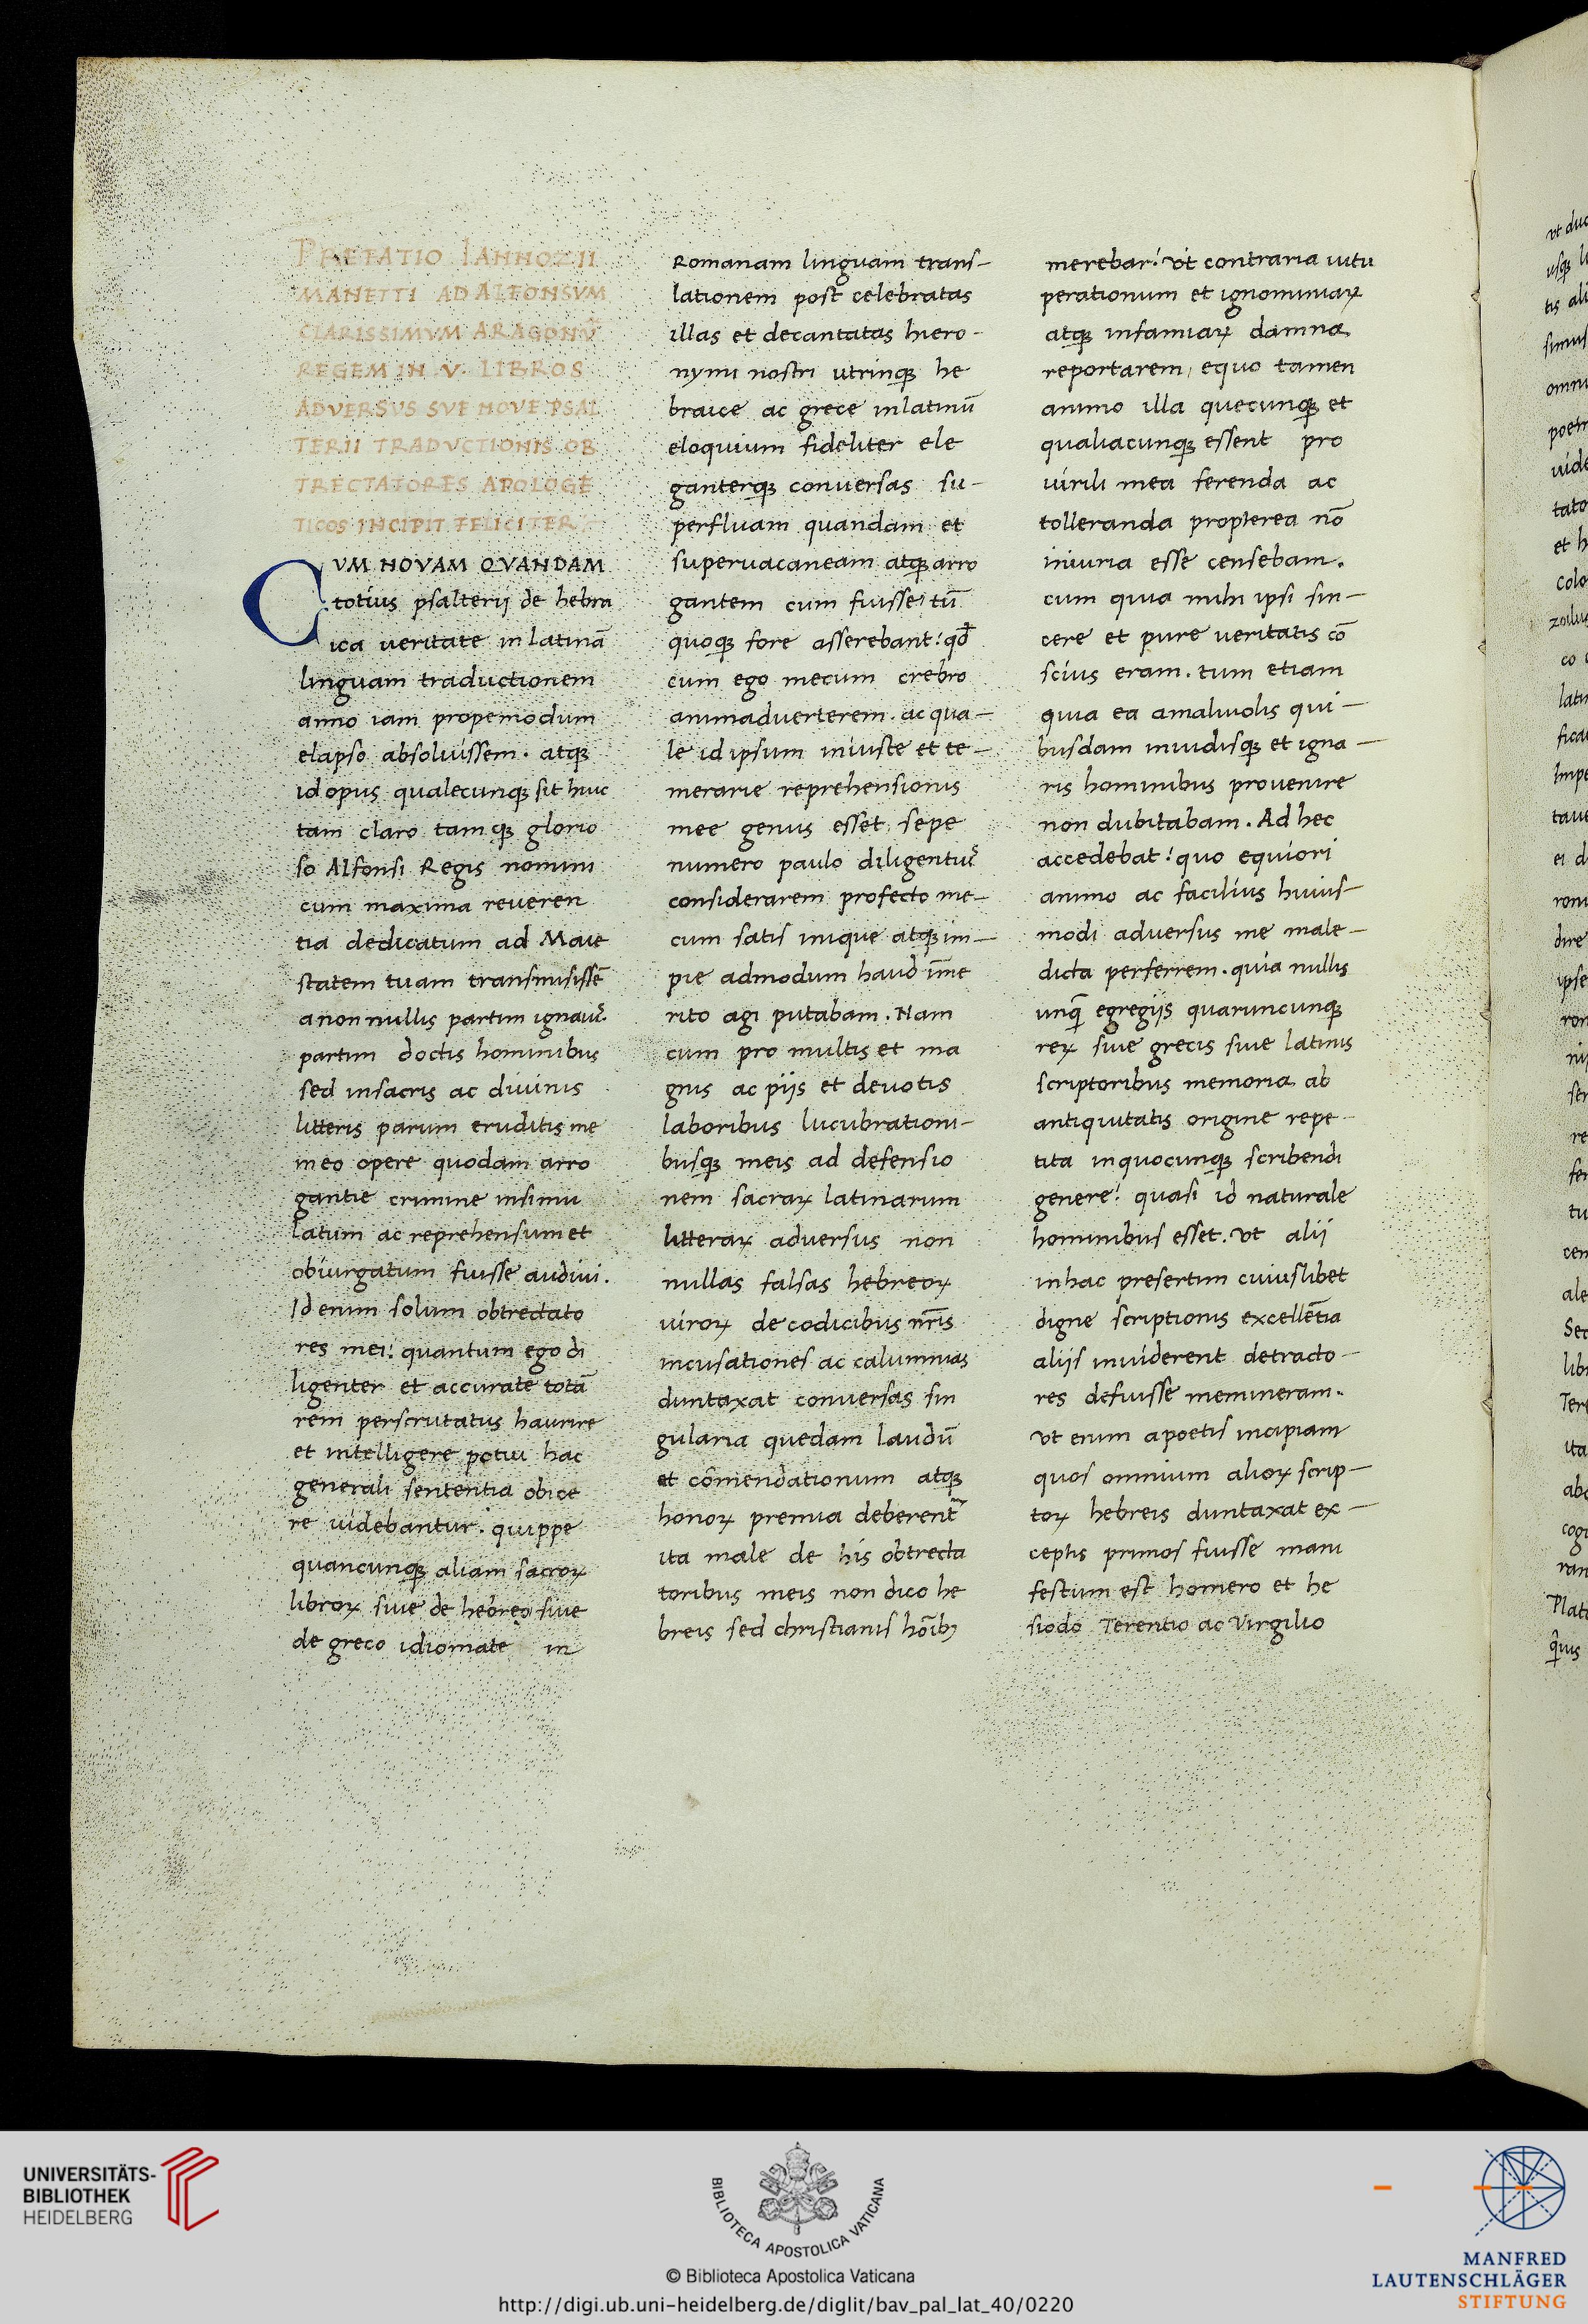 PREFATIO IANNOZII
MANETTI AD ALFONSVM
CLARISSIMVM ARAGONŪ
REGEM IN V. LIBROS
ADVERSVS SVE NOVE PSAL
TERII TRADVCTIONIS OB
TRECTATORES APOLOGE
TICOS INCIPIT FELICITER
CVM NOVAM QVANDAM
totius psalterij de hebra
ica ueritate in latinā
linguam traductionem
anno iam propemodum
elapso absoluissem. atqꝫ
id opus qualecunqꝫ sit huic
tam claro tamqꝫ glorio
so Alfonsi Regis nomini
cum maxima reueren
tia dedicatum ad Maie
statem tuam transmisissē
a nonnullis partim ignauis
partim doctis hominibus
sed in sacris ac diuinis
litteris parum eruditis me
meo opere quodam arro
gantie crimine insimu
latum ac reprehensum et
obiurgatum fuisse audiui.
Id enim solum obtrectato
res mei: quantum ego di
ligenter et accurate totā
rem perscrutatus haurire
et intelligere potui hac
generali sententia obice
re uidebantur. quippe
quancunqꝫ aliam sacroꝝ
libroꝝ siue de hebreo siue
de greco idiomate in
Romanam linguam trans-
lationem post celebratas
illas et decantatas hiero-
nymi nostri utrinqꝫ he
braice ac grece in latinū
eloquium fideliter ele
ganterqꝫ conuersas su-
perfluam quandam et
superuacaneam atqꝫ arro
gantem cum fuisse, tū
quoqꝫ fore asserebant: qđ
cum ego mecum crebro
animaduerterem. ac qua-
le id ipsum iniuste et te-
merarie reprehensionis
mee genus esset, sepe
numero paulo diligentiꝰ
considerarem profecto me-
cum satis inique atqꝫ im-
pie admodum haud īme
rito agi putabam. Nam
cum pro multis et ma
gnis ac piis et deuotis
laboribus lucubrationi-
busqꝫ meis ad defensio
nem sacraꝝ latinarum
litteraꝝ aduersus non
nullas falsas hebreoꝝ
uiroꝝ de codicibus nr̄is
incusationes ac calumnias
duntaxat conuersas sin
gularia quedam laudū
et cōmendationum atqꝫ
honoꝝ premia deberent᷑
ita male de his obtrecta
toribus meis non dico he
breis sed christianis hoībꝫ
merebar: ut contraria uitu
perationum et ignominiaꝝ
atqꝫ infamiaꝝ damna
reportarem, equo tamen
animo illa quecunqꝫ et
qualiacunqꝫ essent pro
uirili mea ferenda ac
tolleranda propterea nō
iniuria esse censebam.
cum quia mihi ipsi sin-
cere et pure ueritatis cō
scius eram. tum etiam
quia ea a maliuolis qui-
busdam inuidisqꝫ et igna-
ris hominibus prouenire
non dubitabam. Ad hec
accedebat: quo equiori
animo ac facilius huius-
modi aduersus me male-
dicta perferrem. quia nullis
unq̄ egregijs quaruncunqꝫ
reꝝ siue grecis siue latinis
scriptoribus memoria ab
antiquitatis origine repe-
tita in quocunqꝫ scribendi
genere: quasi id naturale
hominibus esset. ut alii
in hac presertim cuiuslibet
digne scriptionis excellētia
aliis inuiderent detracto-
res defuisse memineram.
Vt enim a poetis incipiam
quos omnium alioꝝ scrip-
toꝝ hebreis duntaxat ex-
ceptis primos fuisse mani
festum est homero et he
siodo Terentio ac Virgilio
UNIVERSITÄTS-
BIBLIOTHEK
HEIDELBERG
BIBLIOTECA APOSTOLICA VATICANA
© Biblioteca Apostolica Vaticana
http://digi.ub.uni-heidelberg.de/diglit/bav_pal_lat_40/0220
MANFRED
LAUTENSCHLÄGER
STIFTUNG